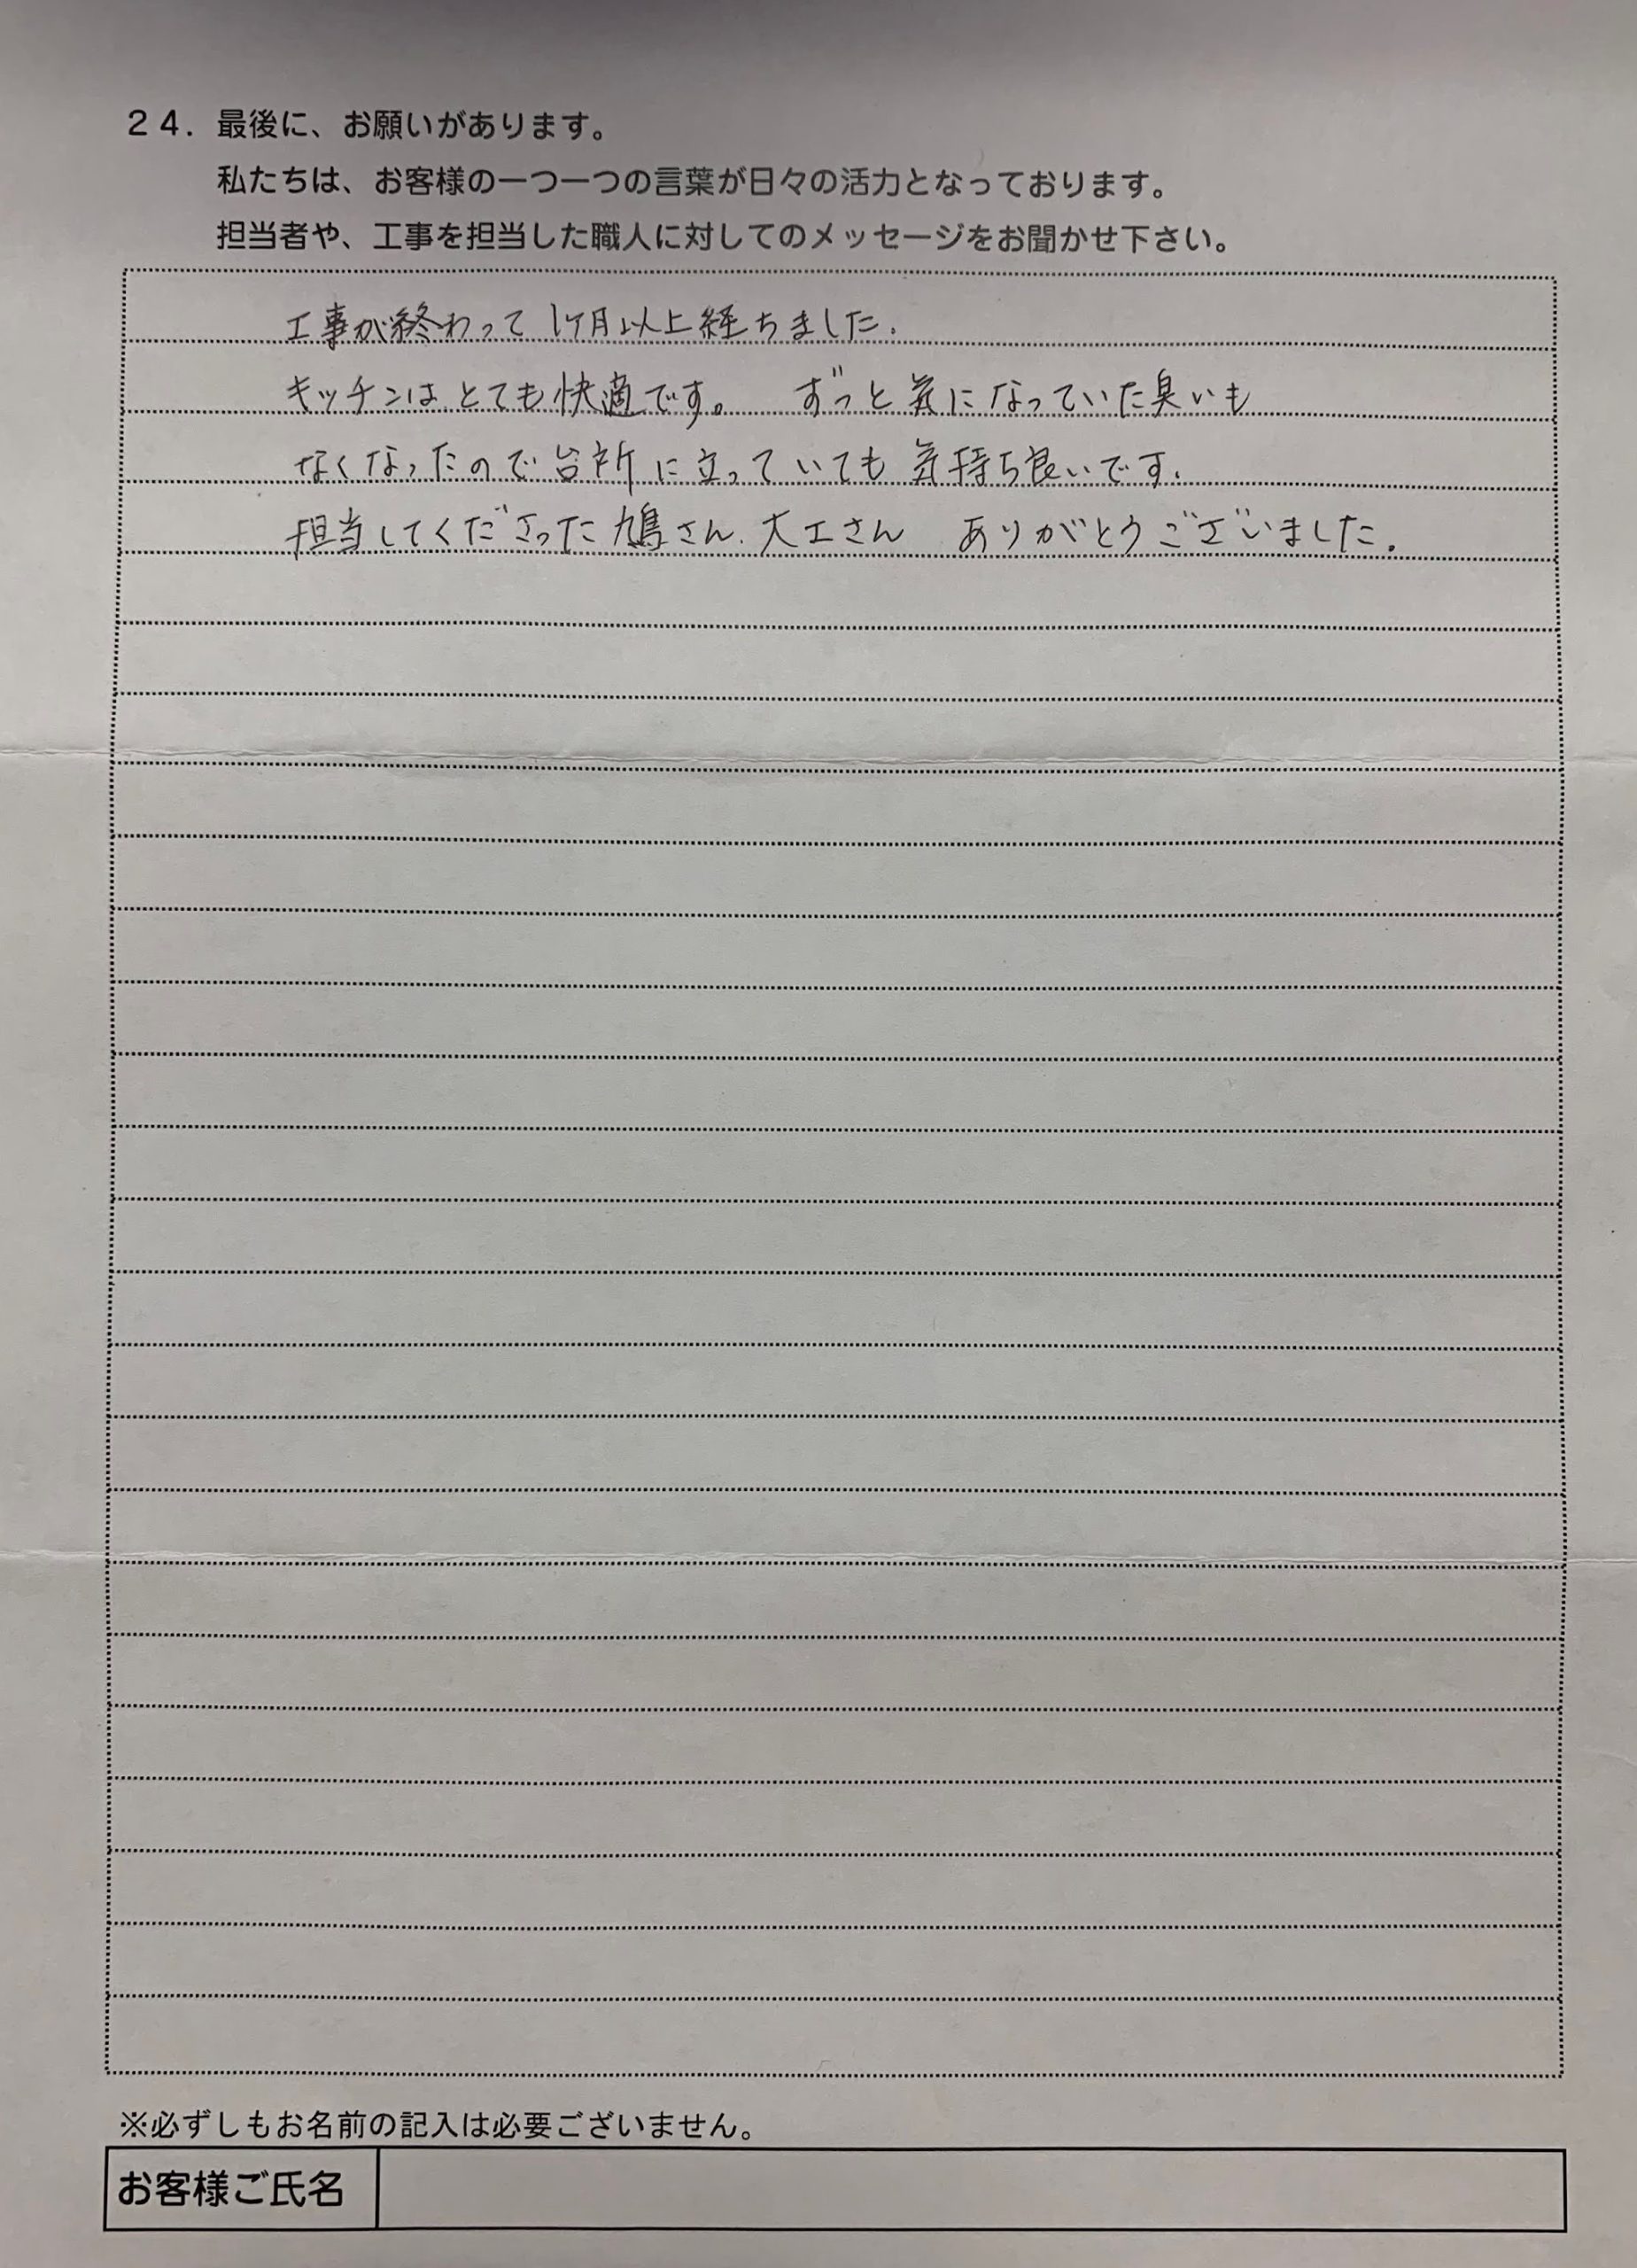 ２４．最後に、お願いがあります。
私たちは、お客様の一つ一つの言葉が日々の活力となっております。
担当者や、工事を担当した職人に対してのメッセージをお聞かせ下さい。
工事が終わって 1ヶ月以上経ちました.
キッチンは、とても快適です。 ずっと気になっていた臭いも
なくなったので台所に立っていても 気持ち良いです.
担当してくださった 鳩さん、大工さん ありがとうございました.
※必ずしもお名前の記入は必要ございません。
お客様ご氏名